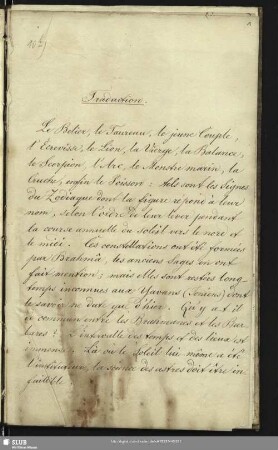 Traduction.
Le Belier, le Taureau, le jeune Couple,
l'Ecrevisse, le Lion, la Vierge, la Balance,
le Scorpion, l'Arc, le Monstre marin, la
Cruche, enfin le Poisson: tels sont les signes
du Zodiaque dont la figure repond a leur
nom, selon l'ordre de leur lever pendant
la course annuelle du soleil vers le nord et
le midi. Ces constellations ont été formées
par Brahma: les anciens sages en ont
fait mention; mais elles sont restées long-
temps inconnues aux Yavans (Ioniens) dont
le savoir ne date que d'hier. Qu'y a t il
de commun entre les Brahmeanes et les Bar-
bares? L'intervalle des temps et des lieux est
immense. La ou le soleil lui même a été
l'instituteur, la science des astres doit être in-
faillible.
SLUB